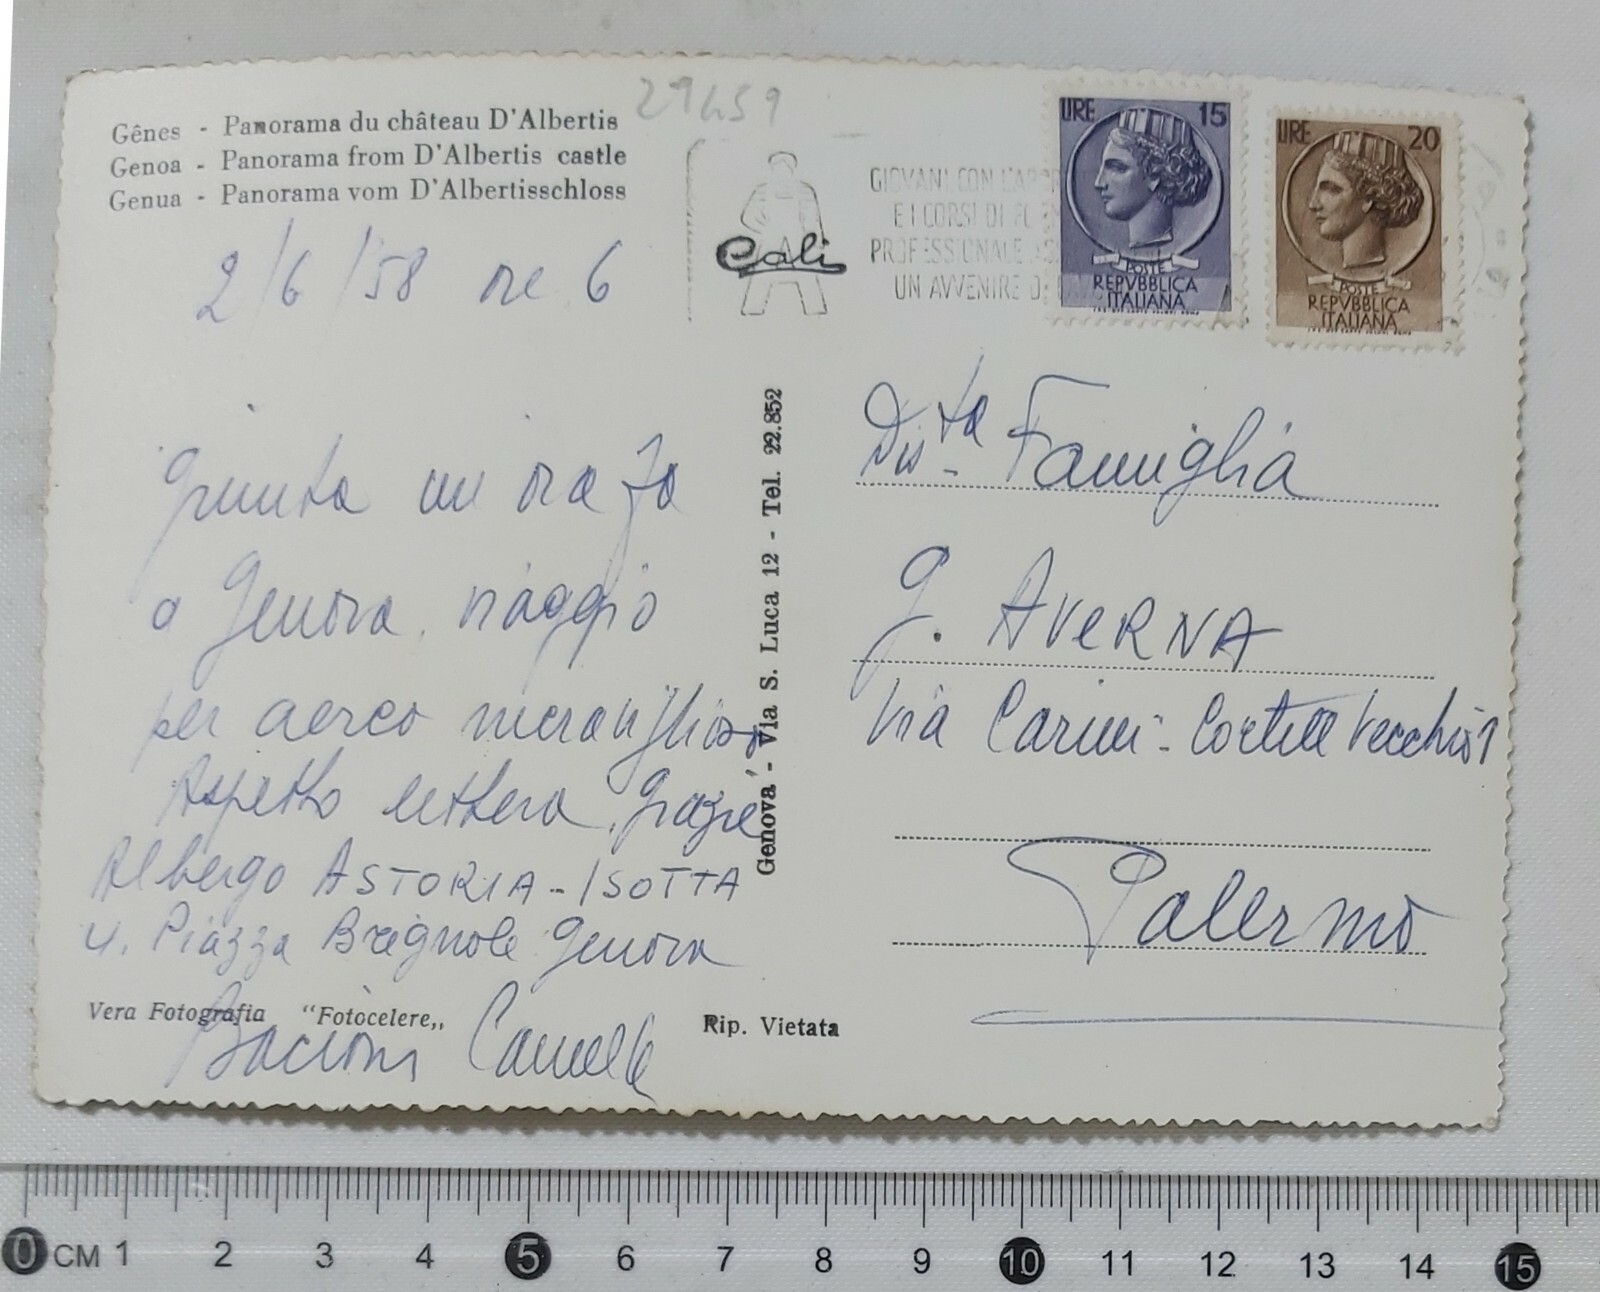 29459
Gênes - Panorama du château D'Albertis
Genoa - Panorama from D'Albertis castle
Genua - Panorama vom D'Albertisschloss
GIOVANI CON L'APP
E I CORSI DI
PROFESSIONALE
UN AVVENIRE
Cali
LIRE 15
POSTE
REPVBBLICA
ITALIANA
LIRE 20
POSTE
REPVBBLICA
ITALIANA
2/6/58 ore 6
giunta un'ora fa
a Genova, viaggio
per aereo meraviglioso
Aspetto lettera, grazie
Albergo ASTORIA-ISOTTA
4. Piazza Brignole Genova
Bacioni
Vera Fotografia "Fotocelere„
Rip. Vietata
Genova - Via S. Luca 12 - Tel. 22.852
Dis.ta Famiglia
G. AVERNA
Via Carini - Vecchio 1
Palermo
0 CM 1 2 3 4 5 6 7 8 9 10 11 12 13 14 15